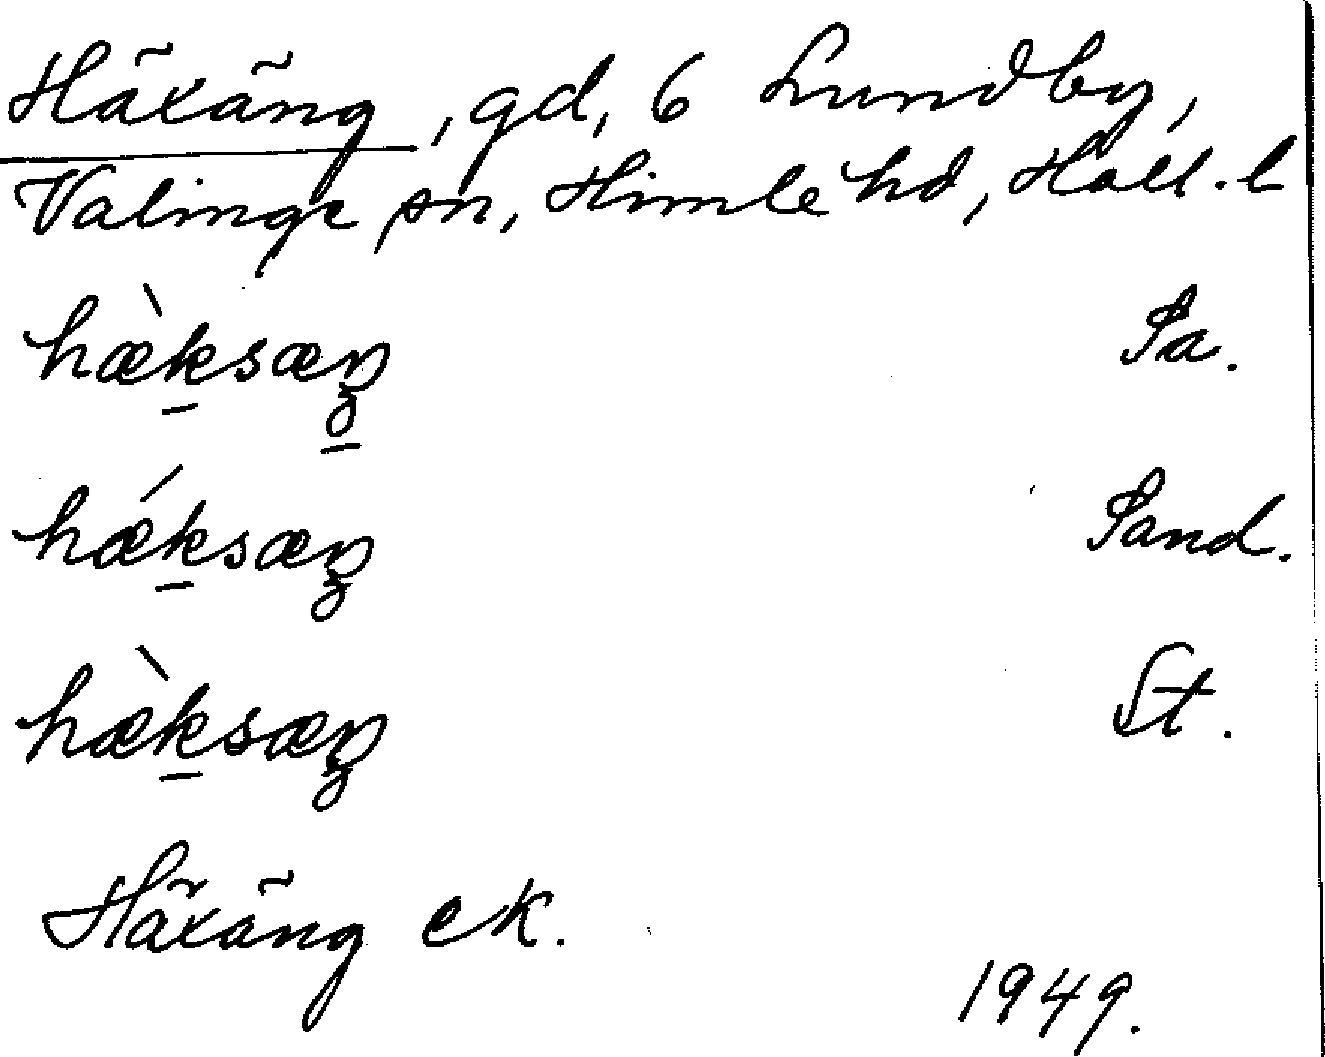 Häxäng, gd, 6 Lundby,
Valinge sn, Himle hd, Hall. l
hæ̀ks̠æŋ Sa.
hǽksæŋ Sand.
hæ̀ksæŋ St.
Häxäng ek.
1949.